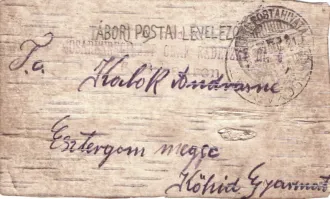 TÁBORI POSTAI LEVELEZŐ
T. c.
Kalók Andrásné
Esztergom megye
Kőhid Gyarmat